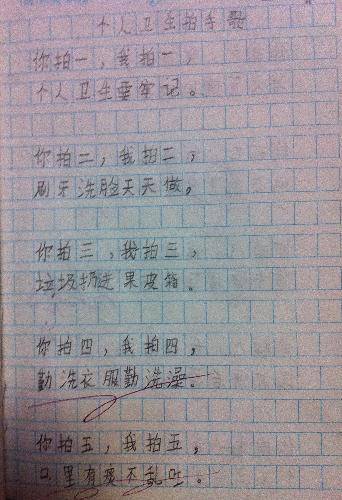 个人卫生拍手歌
你拍一，我拍一，
个人卫生要牢记。
你拍二，我拍二，
刷牙洗脸天天做，
你拍三，我拍三，
垃圾扔进果皮箱。
你拍四，我拍四，
勤洗衣服勤洗澡。
你拍五，我拍五，
口里有痰不乱吐。